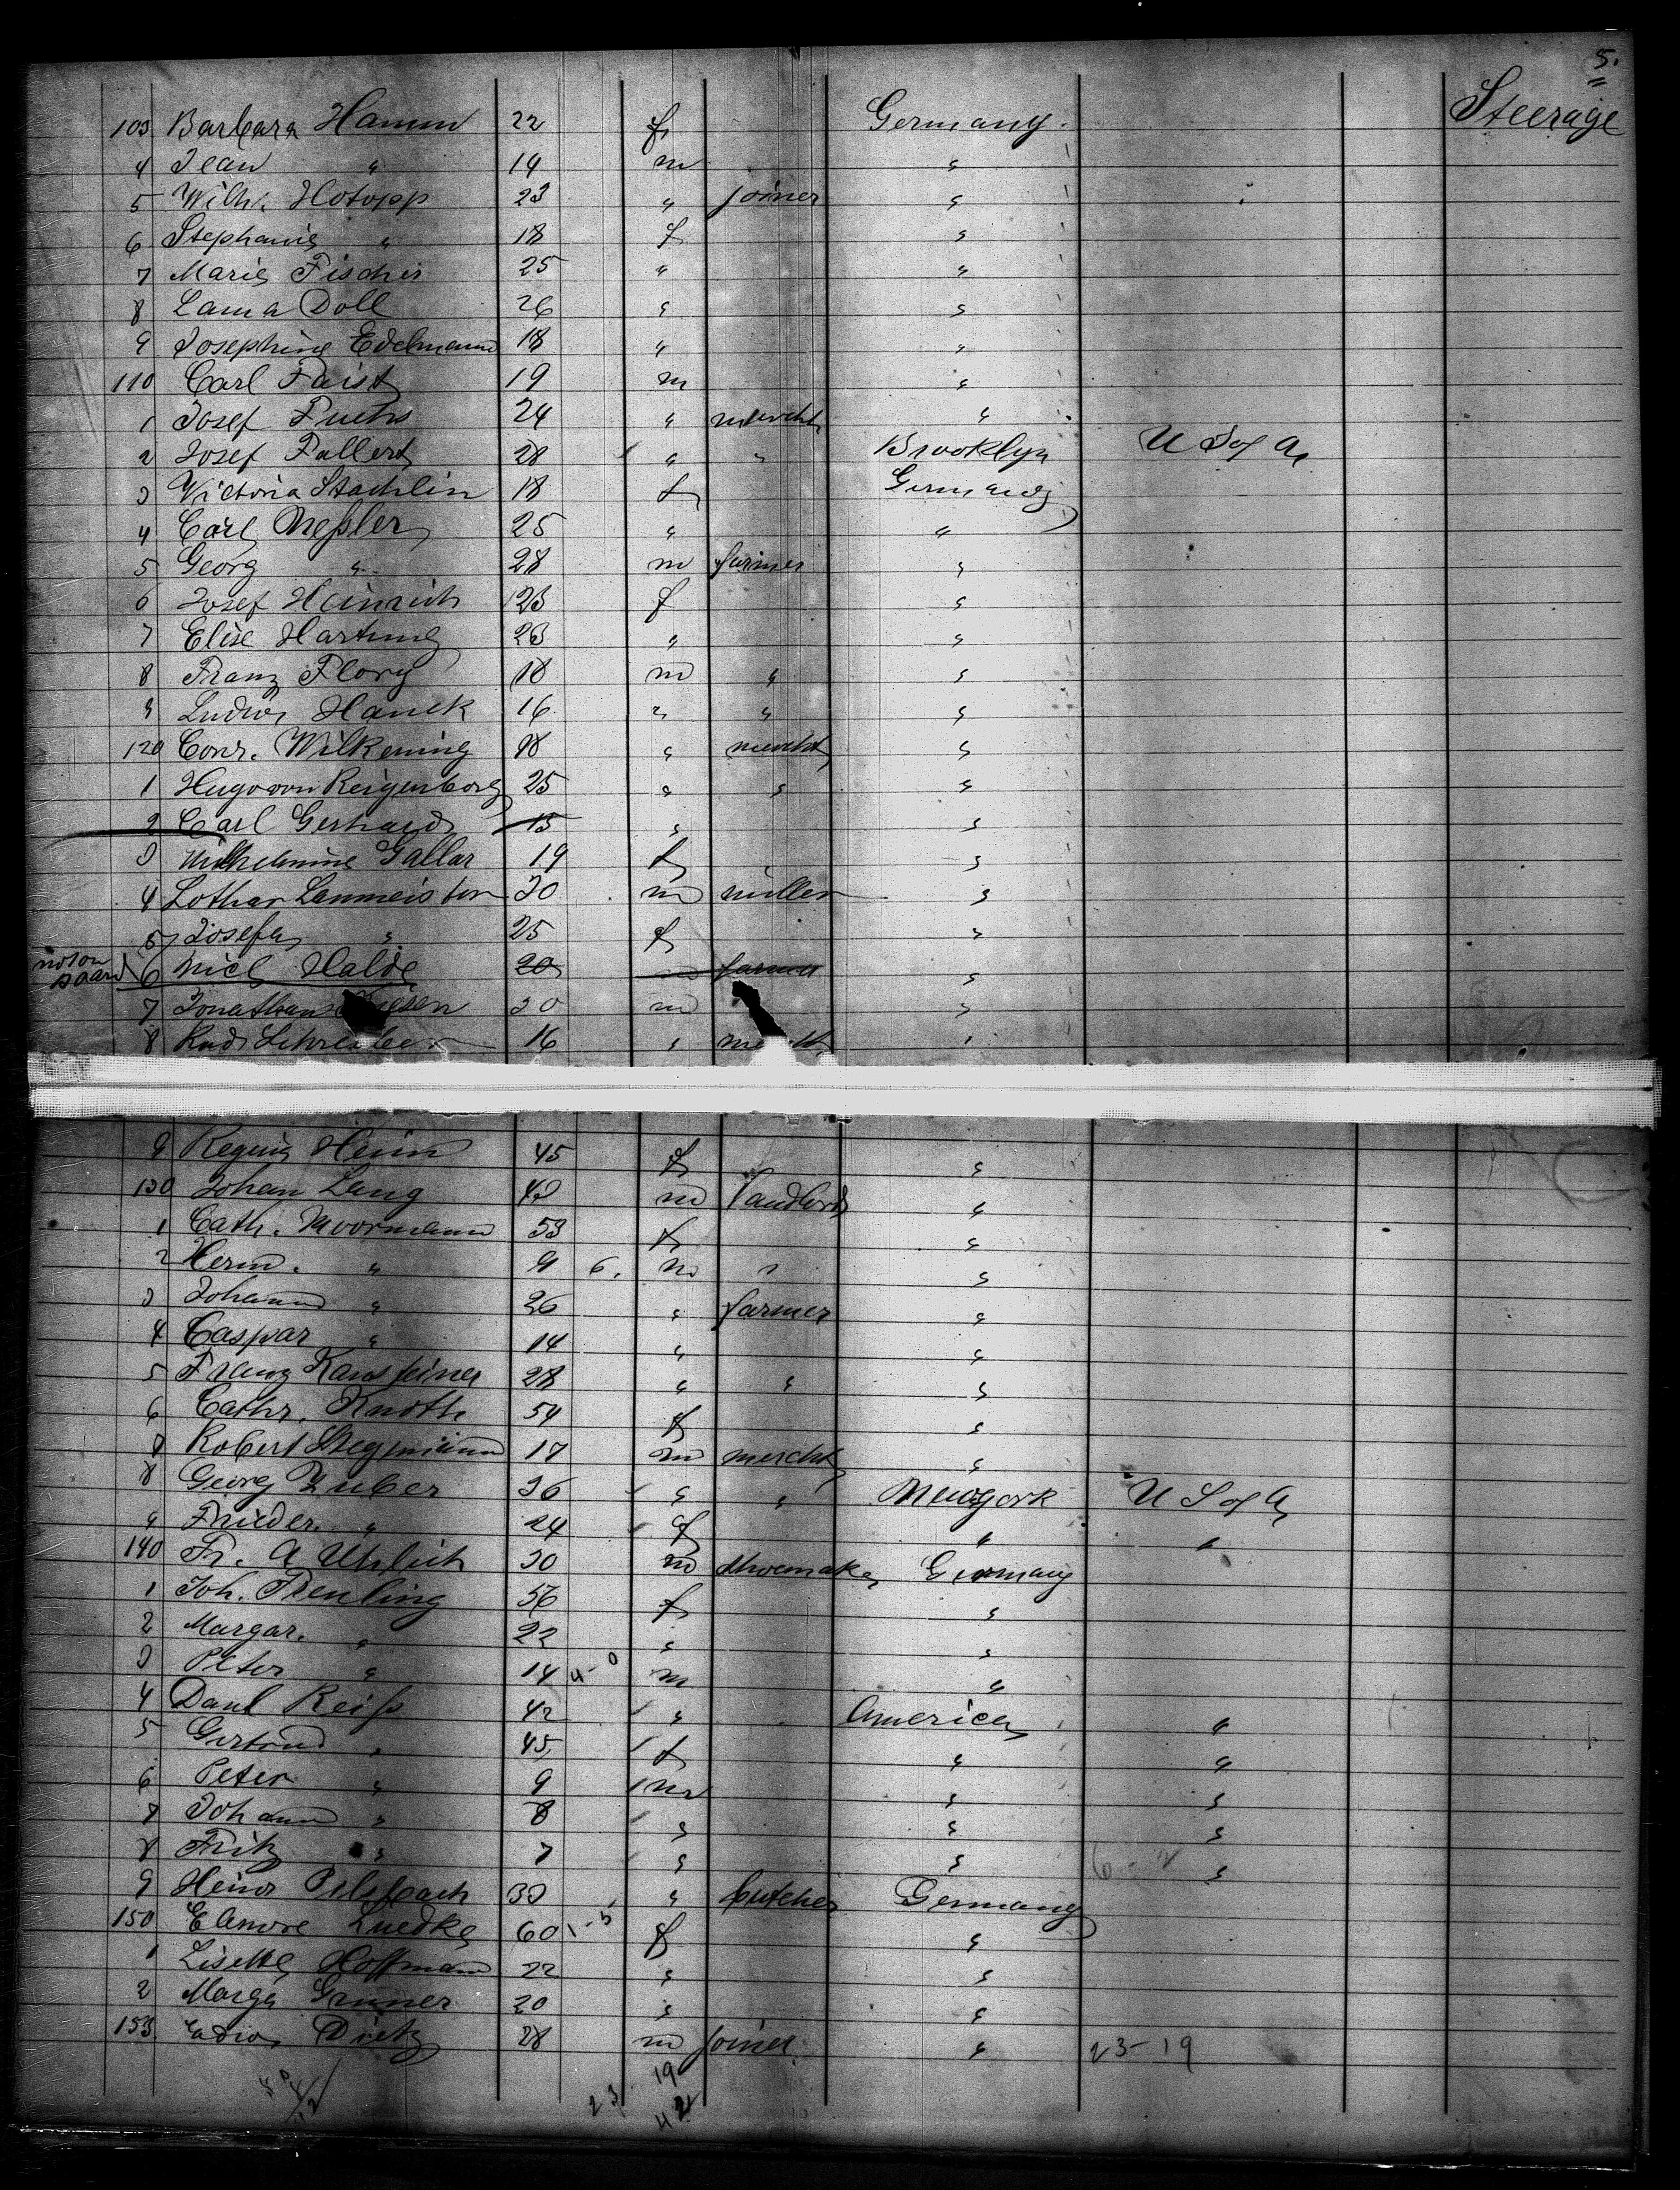 5.
103 Barbara Hamm 22 f Germany. Steerage
4 Jean " 14 m "
5 Wilh. Hotopp 23 " joiner "
6 Stephanie " 18 f "
7 Marie Fischer 25 " "
8 Laura Doll 26 " "
9 Josephine Edelmann 18 " "
110 Carl Faist 19 m "
1 Josef Fuchs 24 " mercht "
2 Josef Fallert 28 " " Brooklyn U S of A
3 Victoria Staehlin 18 f Germany
4 Carl Neßler 25 " "
5 Georg " 28 m farmer "
6 Josef Heinrich 23 f "
7 Elise Hartung 23 " "
8 Franz Flory 18 m " "
9 Ludw. Hauck 16 " " "
120 Conr. Wilkening 18 " mercht "
1 Hugo von 25 " " "
2 Carl Gerhard 15 " "
3 Wilhelmine Gallar 19 f "
4 Lothar Lanmeister 30 m miller "
5 Josefa " 25 f "
not on board 6 Nicl Halde 20 m farmer "
7 Jonathan 20 m "
8 Rud. Schreiber 16 " "
9 Regina Heim 45 f "
130 Johan Lang 43 m landlord "
1 Cath. Moormann 53 f "
2 Herm. " 9 6. m " "
3 Johann " 26 " farmer "
4 Caspar " 14 " "
5 Franz 28 " " "
6 Cathr. Knoth 54 f "
7 Robert Stegemann 17 m mercht "
8 Georg Zuber 36 " " Newyork U S of A
9 Frieder. " 24 f " "
140 Fr. A Uhlich 30 m shoemaker Germany
1 Joh. Freuling 56 f "
2 Margar. " 22 " "
3 Peter " 14 4-0 m "
4 Danl Reiß 42 " America "
5 Gertrud " 45 f " "
6 Peter " 9 m " "
7 Johann " 8 " " "
8 Fritz " 7 " " 6-2 "
9 Heinr 30 " butcher Germany
150 Elenore Luedke 60 1-5 f "
1 Lisette Hoffmann 22 " "
2 Marga Gruner 20 " "
153. Dietz 28 m joiner " 23-19
23 19
42